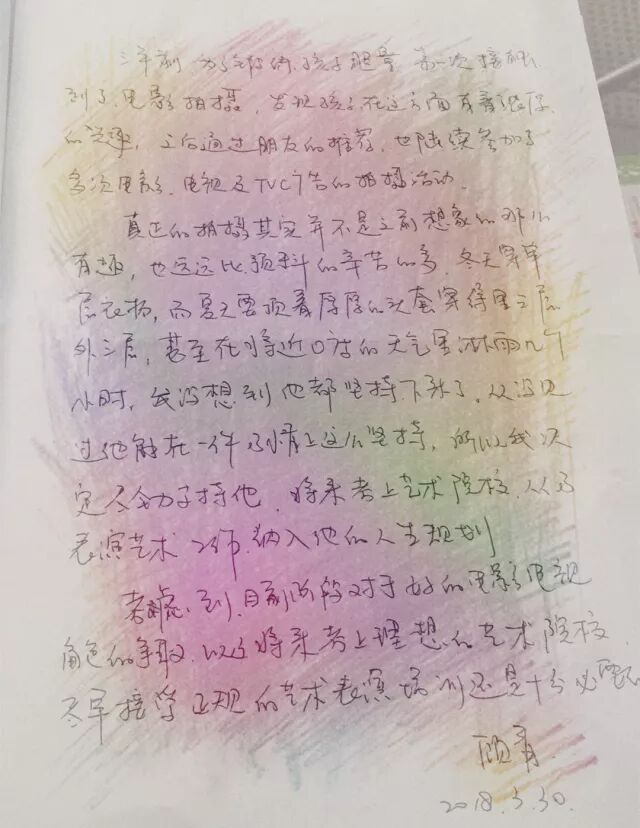 三年前,为了锻炼孩子胆量 第一次接触
到了电影拍摄,发现孩子在这方面有着浓厚
的兴趣,之后通过朋友的推荐,也陆续参加了
多次电影、电视及TVC广告的拍摄活动。
真正的拍摄其实并不是之前想象的那么
有趣,也远远比预料的辛苦的多,冬天穿单
层衣杨,而夏天要顶着厚厚的头套穿得里三层
外三层,甚至在将近0度的天气里淋雨几个
小时,我没想到他都坚持下来了,从没见
过他能在一件事情上这么坚持,所以我决
定尽全力支持他,将来考上艺术院校,从事
表演艺术工作,纳入他的人生规划
考虑到,目前阶段对于好的电影电视
角色的争取,以及将来考上理想的艺术院校,
尽早接学正规的艺术表演培训还是十分必要的
顾青
2018.5.30.